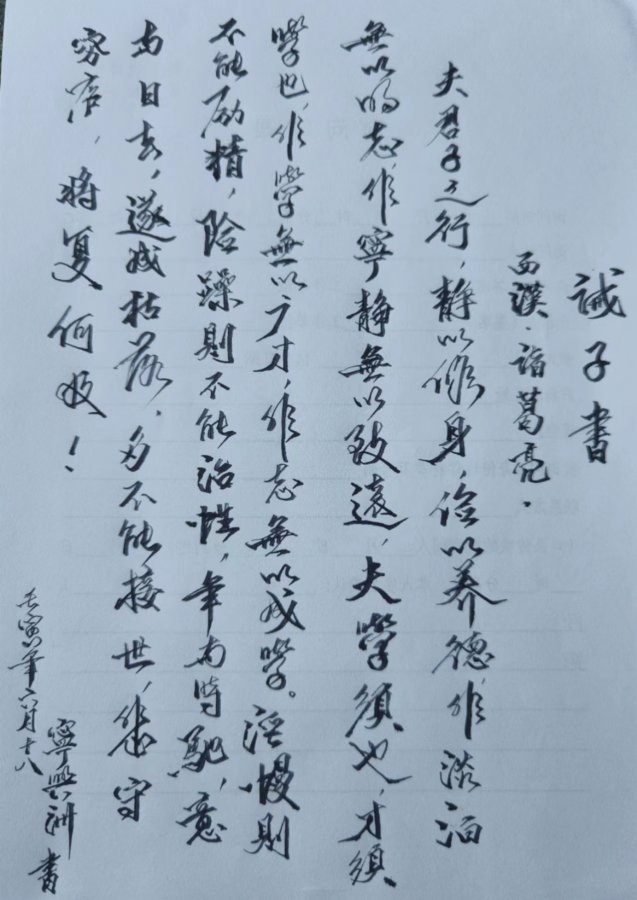 誡子書
西漢·诸葛亮.
夫君子之行,静以修身,俭以养德,非淡泊
無以明志,非寧静無以致遠,夫學須也,才須
學也,非學無以广才,非志無以成學。淫慢則
不能励精,险躁則不能治性,年与時馳,意
与日去,遂成枯落,多不能接世,悲守
穷庐,将复何及!
壬寅年六月十八
寧興洲書